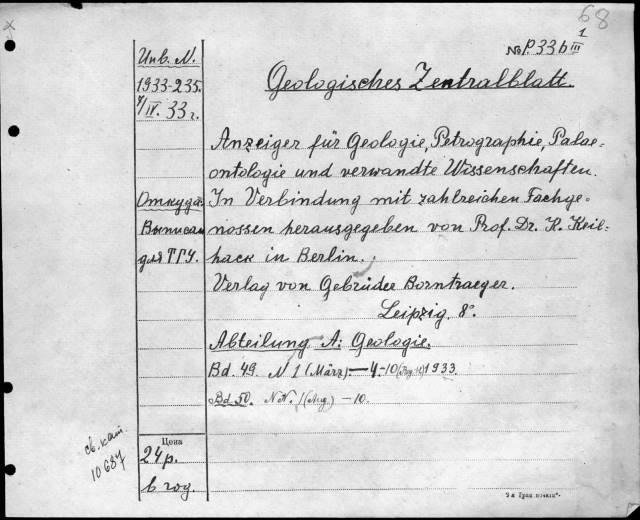 68
№ P. 33b III 1
Geologisches Zentralblatt.
Anzeiger für Geologie, Petrographie, Palae-
ontologie und verwandte Wissenschaften.
In Verbindung mit zahlreichen Fachge-
nossen herausgegeben von Prof. Dr. K. Keil-
hack in Berlin.
Verlag von Gebrüder Borntraeger.
Leipzig. 8°.
Abteilung A: Geologie.
Bd. 49. N 1 (März) — 4-10 1933.
Bd 50. N.N. 1 (Aug.) — 10.
Инв. N.
1933-235.
7/IV. 33 г.
Откуда:
Выписан
для ТГУ.
Цена
24 р.
в год.
св. кат.
10687